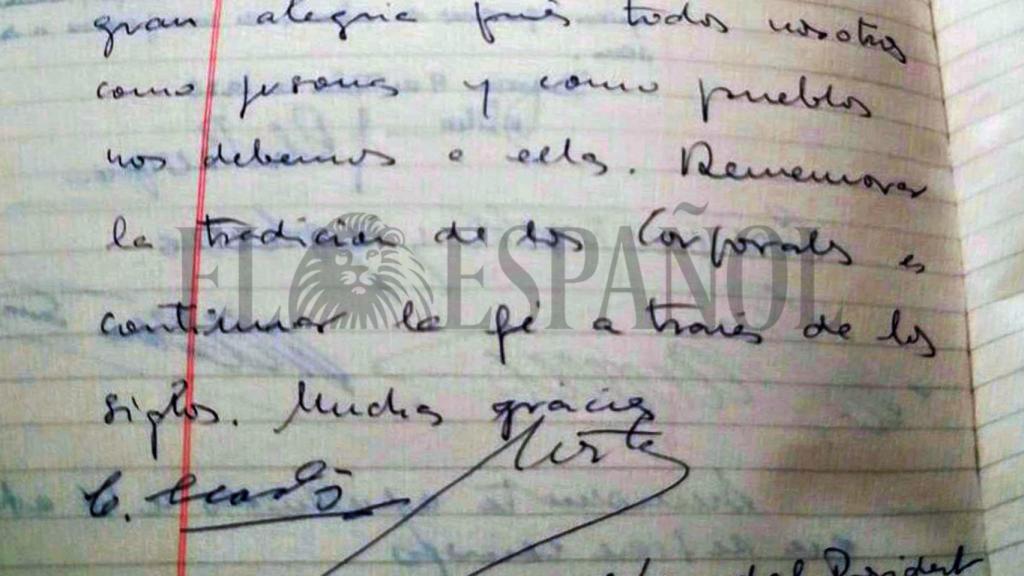 gran alegria pués todos nosotros
como personas y como pueblos
nos debemos a ella. Rememorar
la tradición de los Corporales es
EL ESPAÑOL
continuar la fé a través de los
siglos. Muchas gracias
del President